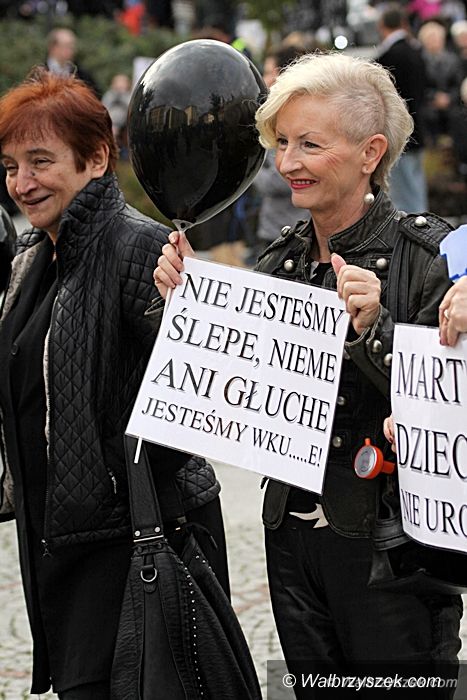 NIE JESTEŚMY
ŚLEPE, NIEME
ANI GŁUCHE
JESTEŚMY WKU.....E!
MARTW
DZIEC
NIE URO
© Walbrzyszek.com